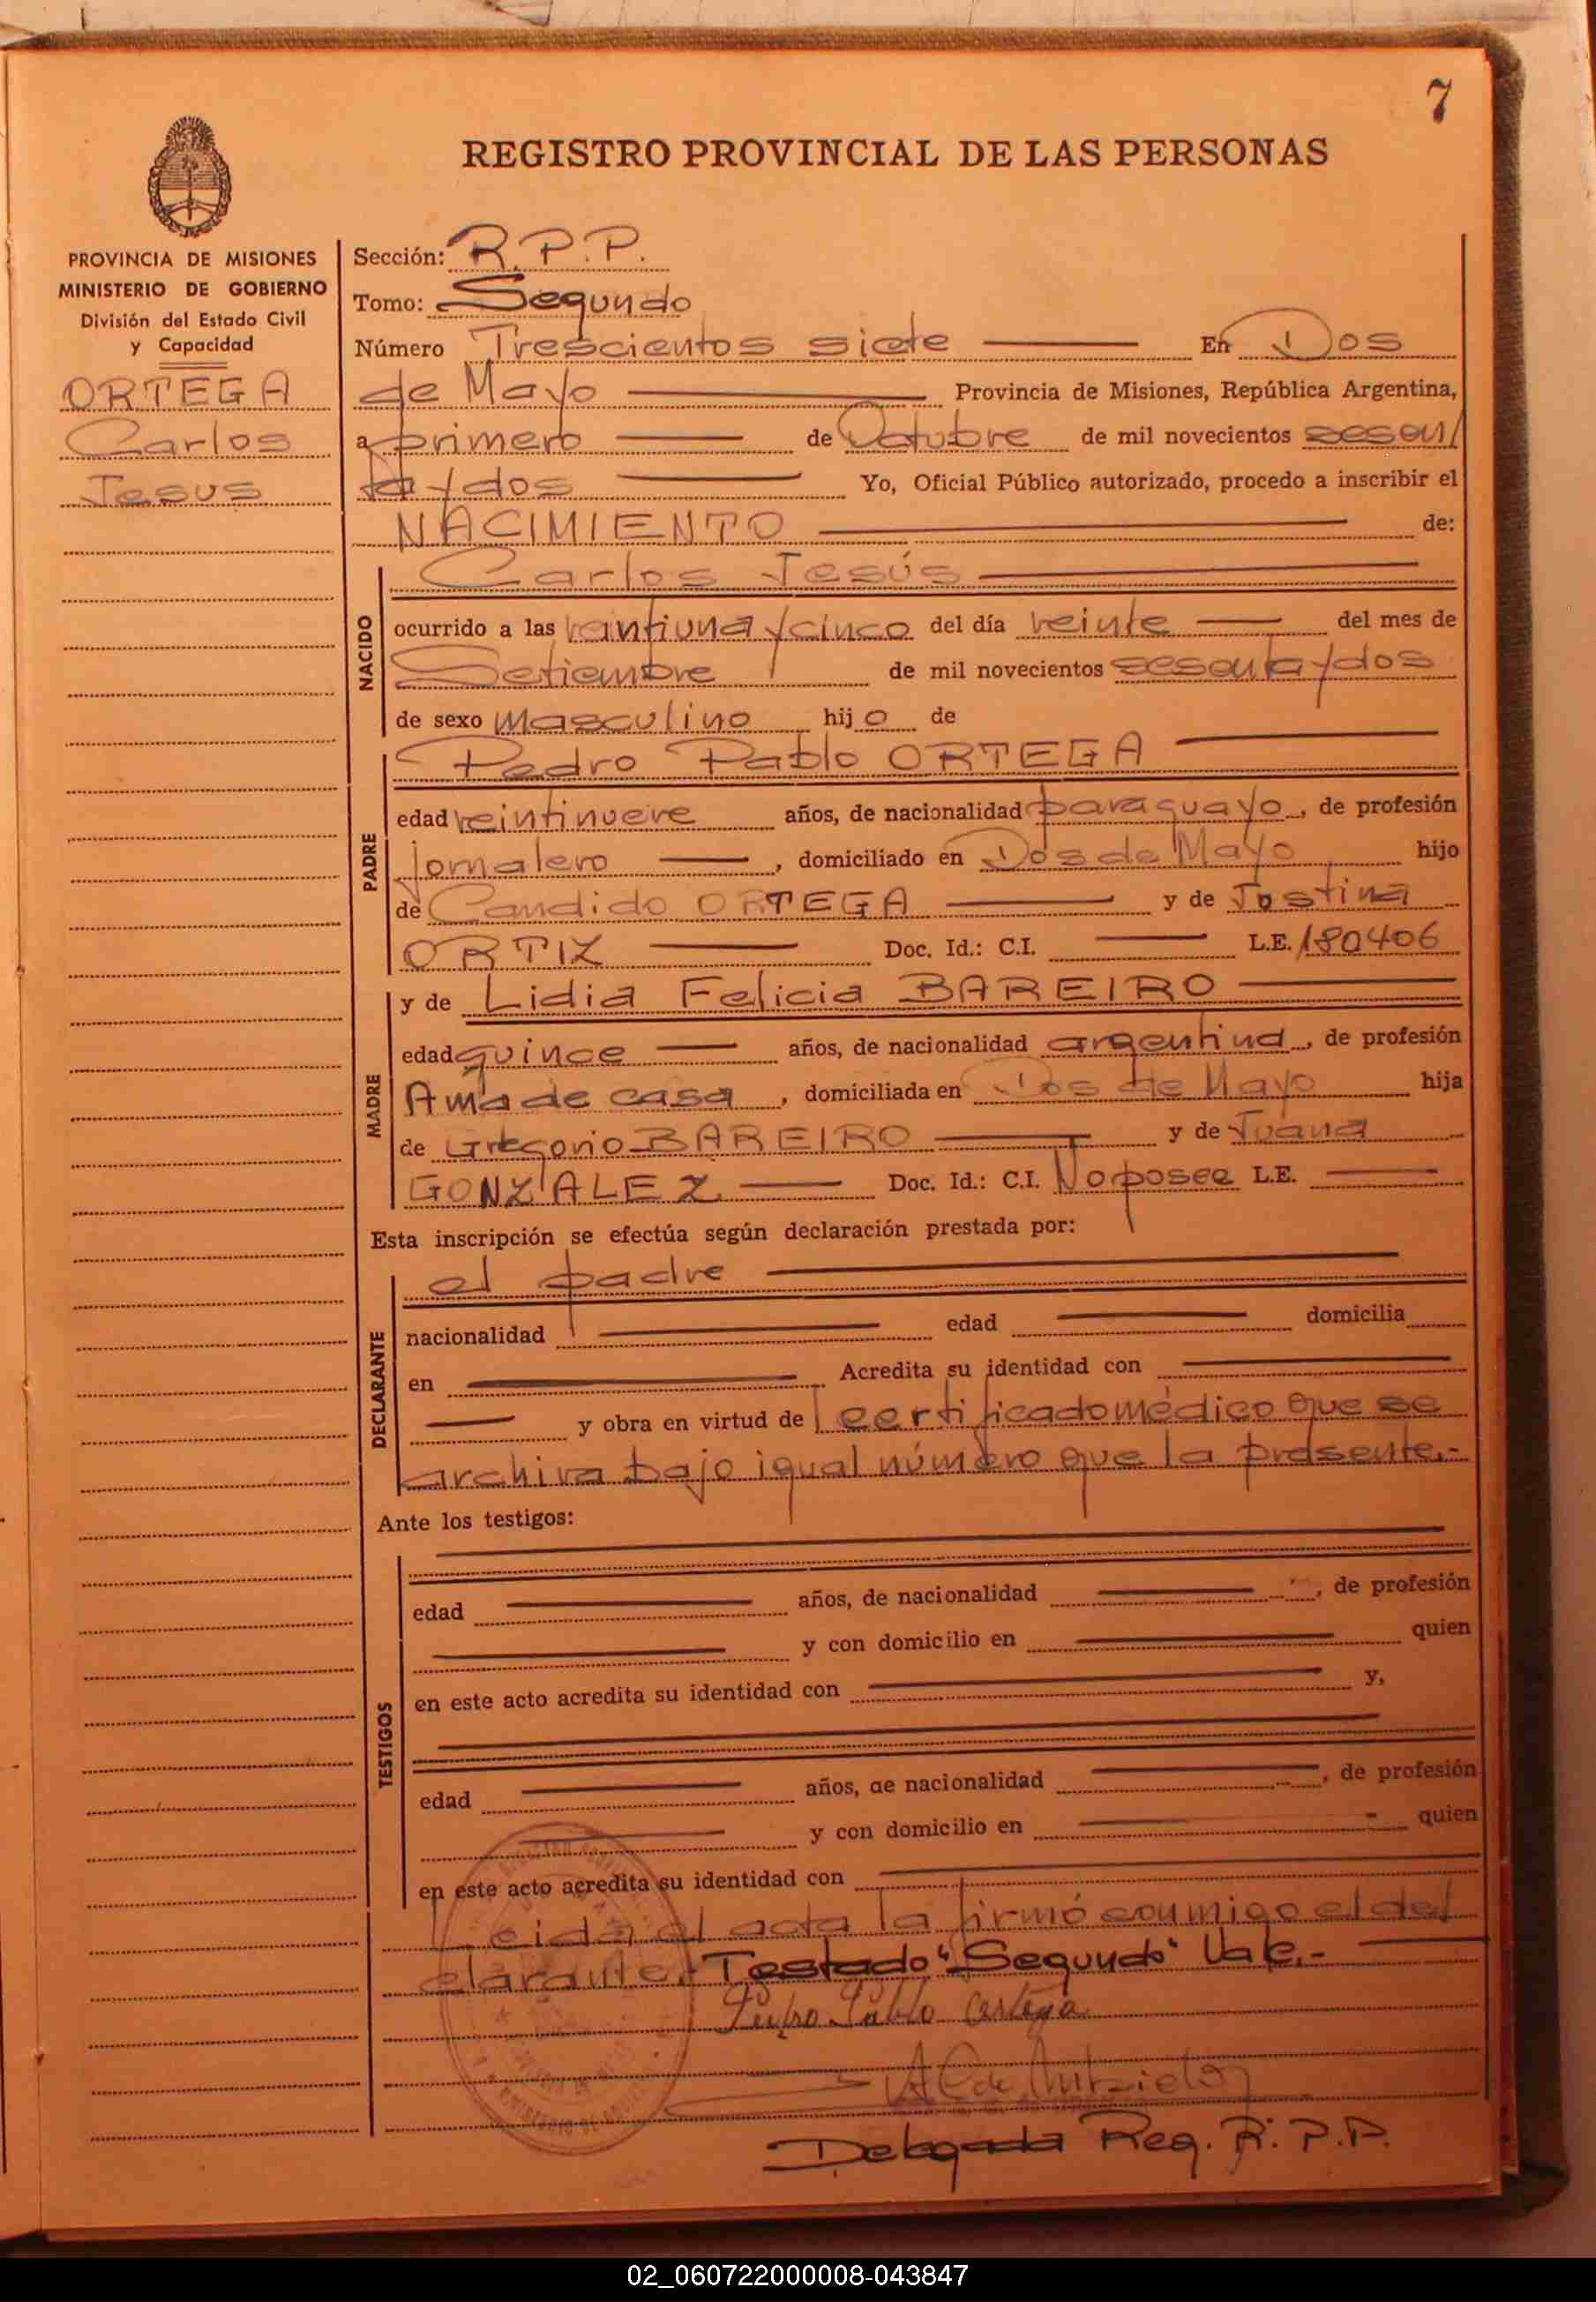 7
REGISTRO PROVINCIAL DE LAS PERSONAS
PROVINCIA DE MISIONES
MINISTERIO DE GOBIERNO
División del Estado Civil
y Capacidad
ORTEGA
Carlos
Jesus
Sección: R.P.P.
Tomo: Segundo
Número Trescientos siete En Dos
de Mayo Provincia de Misiones, República Argentina,
a primero de Octubre de mil novecientos sesen/
ta y dos Yo, Oficial Público autorizado, procedo a inscribir el
NACIMIENTO de:
NACIDO
Carlos Jesús
ocurrido a las veintiuna y cinco del día veinte del mes de
Setiembre de mil novecientos sesenta y dos
de sexo masculino hijo de
PADRE
Pedro Pablo ORTEGA
edad veintinueve años, de nacionalidad paraguayo, de profesión
jornalero, domiciliado en Dos de Mayo hijo
de Candido ORTEGA y de Jostina
ORTIZ Doc. Id.: C.I. L.E. 180406
MADRE
y de Lidia Felicia BAREIRO
edad quince años, de nacionalidad argentina, de profesión
Ama de casa, domiciliada en Dos de Mayo hija
de Gregorio BAREIRO y de Juana
GONZALEZ Doc. Id.: C.I. No posee L.E.
Esta inscripción se efectúa según declaración prestada por:
DECLARANTE
el padre
nacionalidad edad domicilia
en Acredita su identidad con
y obra en virtud de certificado médico que se
archiva bajo igual número que la presente.-
Ante los testigos:
TESTIGOS
edad años, de nacionalidad , de profesión
y con domicilio en quien
en este acto acredita su identidad con y,
edad años, de nacionalidad , de profesión
y con domicilio en quien
en este acto acredita su identidad con
Leida el acta la firmó conmigo el de/
clarante. Testado "Segundo" Vale.-
Pedro Pablo Ortega
Delegada Reg. R.P.P.
02_060722000008-043847